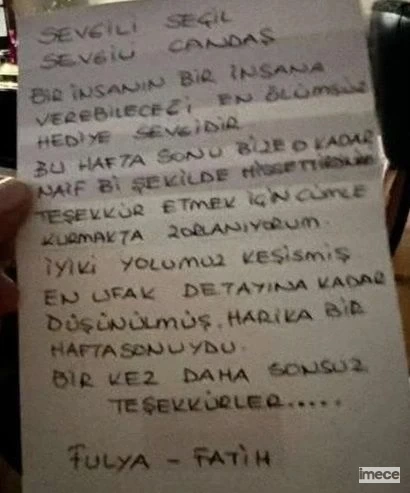 SEVGİLİ SEÇİL
SEVGİLİ CANDAŞ
BİR İNSANIN BİR İNSANA
VEREBİLECEĞİ EN ÖLÜMSÜZ
HEDİYE SEVGİDİR
BU HAFTA SONU BİZE O KADAR
NAİF Bİ ŞEKİLDE HİSSETTİRDİNİZ
TEŞEKKÜR ETMEK İÇİN CÜMLE
KURMAKTA ZORLANIYORUM.
İYİKİ YOLUMUZ KEŞİSMİŞ
EN UFAK DETAYINA KADAR
DÜŞÜNÜLMÜŞ, HARİKA BİR
HAFTASONUYDU.
BİR KEZ DAHA SONSUZ
TEŞEKKÜRLER.....
FULYA - FATİH
imece